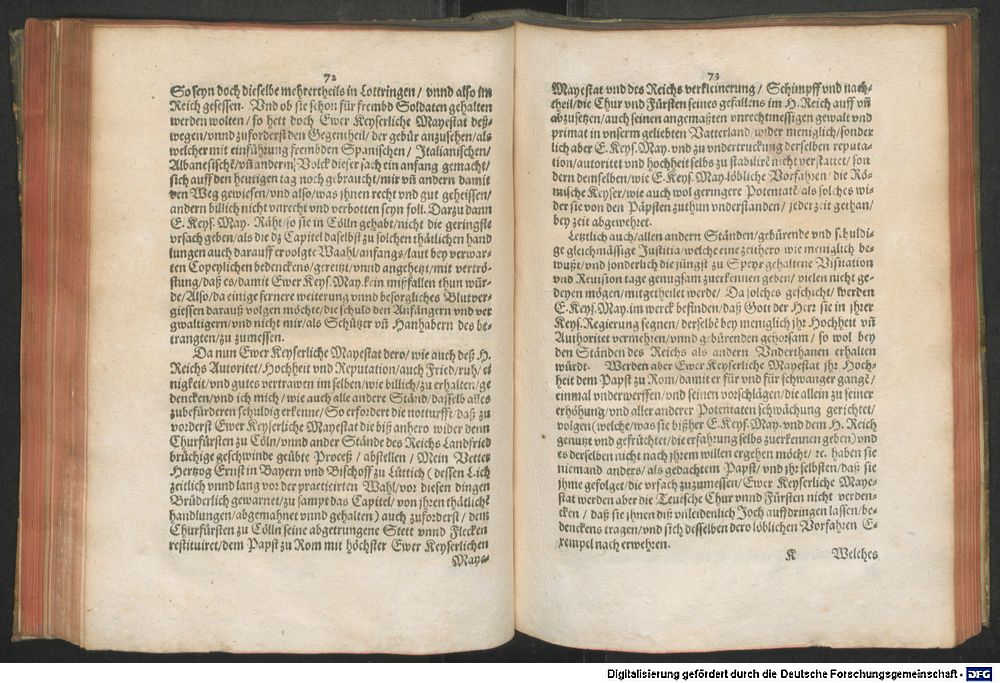 72
So seyn doch dieselbe mehrertheils in Lottringen / vnnd also im
Reich gesessen. Vnd ob sie schon für frembd Soldaten gehalten
werden wolten / so hett doch Ewer Keyserliche Mayestat deß-
wegen / vnnd zuforderst den Gegentheil / der gebür anzusehen / als
welcher mit einführung frembden Spanischen / Italianischen /
Albanesischẽ / vñ andern Volck dieser sach ein anfang gemacht /
sich auff den heutigen tag noch gebraucht / mir vñ andern damit
den Weg gewiesen / vnd also / was jhnen recht vnd gut geheissen /
andern billich nicht vnrecht vnd verbotten seyn soll. Darzu dann
E. Keys. May. Räht / so sie in Cölln gehabt / nicht die geringste
vrsach geben / als die dz Capitel daselbst zu solchen thätlichen hand
lungen auch darauff ervolgte Waahl / anfangs / laut bey verwar-
ten Copeylichen bedenckens / gereitzt / vnnd angehetzt / mit vertrö-
stung / daß es / damit Ewer Keys. May. kein mißfallen thun wür-
de / Also / da einige fernere weiterung vnnd besorgliches Blutver-
giessen darauß volgen möchte / die schuld den Anfängern vnd ver
gwaltigern / vnd nicht mir / als Schützer vñ Hanhabern des be-
trangten / zu zumessen.
Da nun Ewer Keyserliche Mayestat dero / wie auch deß H.
Reichs Autoritet / Hochheit vnd Reputation / auch Fried / ruh / ei
nigkeit / vnd gutes vertrawen im selben / wie billich / zu erhalten / ge
dencken / vnd ich mich / wie auch alle andere Ständ / dasselb alles
zubefürderen schuldig erkenne / So erfordert die notturfft / daß zu
vorderst Ewer Keyserliche Mayestat die biß anhero wider denn
Churfürsten zu Cöln / vnnd ander Stände des Reichs Landfried
brüchige geschwinde geübte Proceß / abstellen / Mein Vetter
Hertzog Ernst in Bayern vnd Bischoff zu Lüttich (dessen L. ich
zeitlich vnnd lang vor der practicirten Wahl / vor diesen dingen
Brüderlich gewarnet / zu sampt das Capitel / von jhren thätlichẽ
handlungen / abgemahnet vnnd gehalten) auch zuforderst / dem
Churfürsten zu Cölln seine abgetrungene Stett vnnd Flecken
restituiret / dem Papst zu Rom mit höchster Ewer Keyserlichen
Maye-
73
Mayestat vnd des Reichs verkleinerung / Schimpff vnd nach-
theil / die Chur vnd Fürsten seines gefallens im H. Reich auff vñ
abzusetzen / auch seinen angemaßten vnrechtmessigen gewalt vnd
primat in vnserm geliebten Vatterland / wider meniglich / sonder
lich aber E. Keys. May. vnd zu vndertruckung derselben reputa-
tion / autoritet vnd hochheit selbs zu stabilirẽ nicht verstattet / son
dern demselben / wie E. Keys. May. löbliche Vorfahren / die Rö-
mische Keyser / wie auch wol geringere Potentatẽ als solches wi-
der sie von den Päpsten zuthun vnderstanden / jeder zeit gethan /
bey zeit abgewehret.
Letzlich auch / allen andern Ständen / gebürende vnd schuldi-
ge gleichmässige Justitia / welche eine zeithero wie meniglich be-
wußt / vnd sonderlich die jüngst zu Speyr gehaltene Visitation
vnd Reuision tage genugsam zuerkennen geben / vielen nicht ge-
deyen mögen / mitgetheilet werde / Da solches geschicht / werden
E. Keys. May. im werck befinden / daß Gott der Herr sie in jhrer
Keys. Regierung segnen / derselbẽ bey meniglich jhr Hochheit vñ
Authoritet vermehren / vnnd gebürenden gehorsam / so wol bey
den Ständen des Reichs als andern Vnderthanen erhalten
würdt. Werden aber Ewer Keyserliche Mayestat jhr Hoch-
heit dem Papst zu Rom / damit er für vnd für schwanger gangẽ /
einmal vnderwerffen / vnd seinen vorschlägen / die allein zu seiner
erhöhung / vnd aller anderer Potentaten schwächung gerichtet /
volgen (welche / was sie bißher E. Keys. May. vnd dem H. Reich
genutzt vnd gefrüchtet / die erfahrung selbs zuerkennen geben) vnd
es derselben nicht nach jhrem willen ergehen möcht / ꝛc. haben sie
niemand anders / als gedachtem Papst / vnd jhr selbsten / daß sie
jhme gefolget / die vrsach zuzumessen / Ewer Keyserliche Maye-
stat werden aber die Teutsche Chur vnnd Fürsten nicht verden-
cken / daß sie jhnen diß vnleidenlich Joch auffdringen lassen / be-
denckens tragen / vnd sich desselben dero löblichen Vorfahren E-
xempel nach erwehren.
K Welches
Digitalisierung gefördert durch die Deutsche Forschungsgemeinschaft - DFG